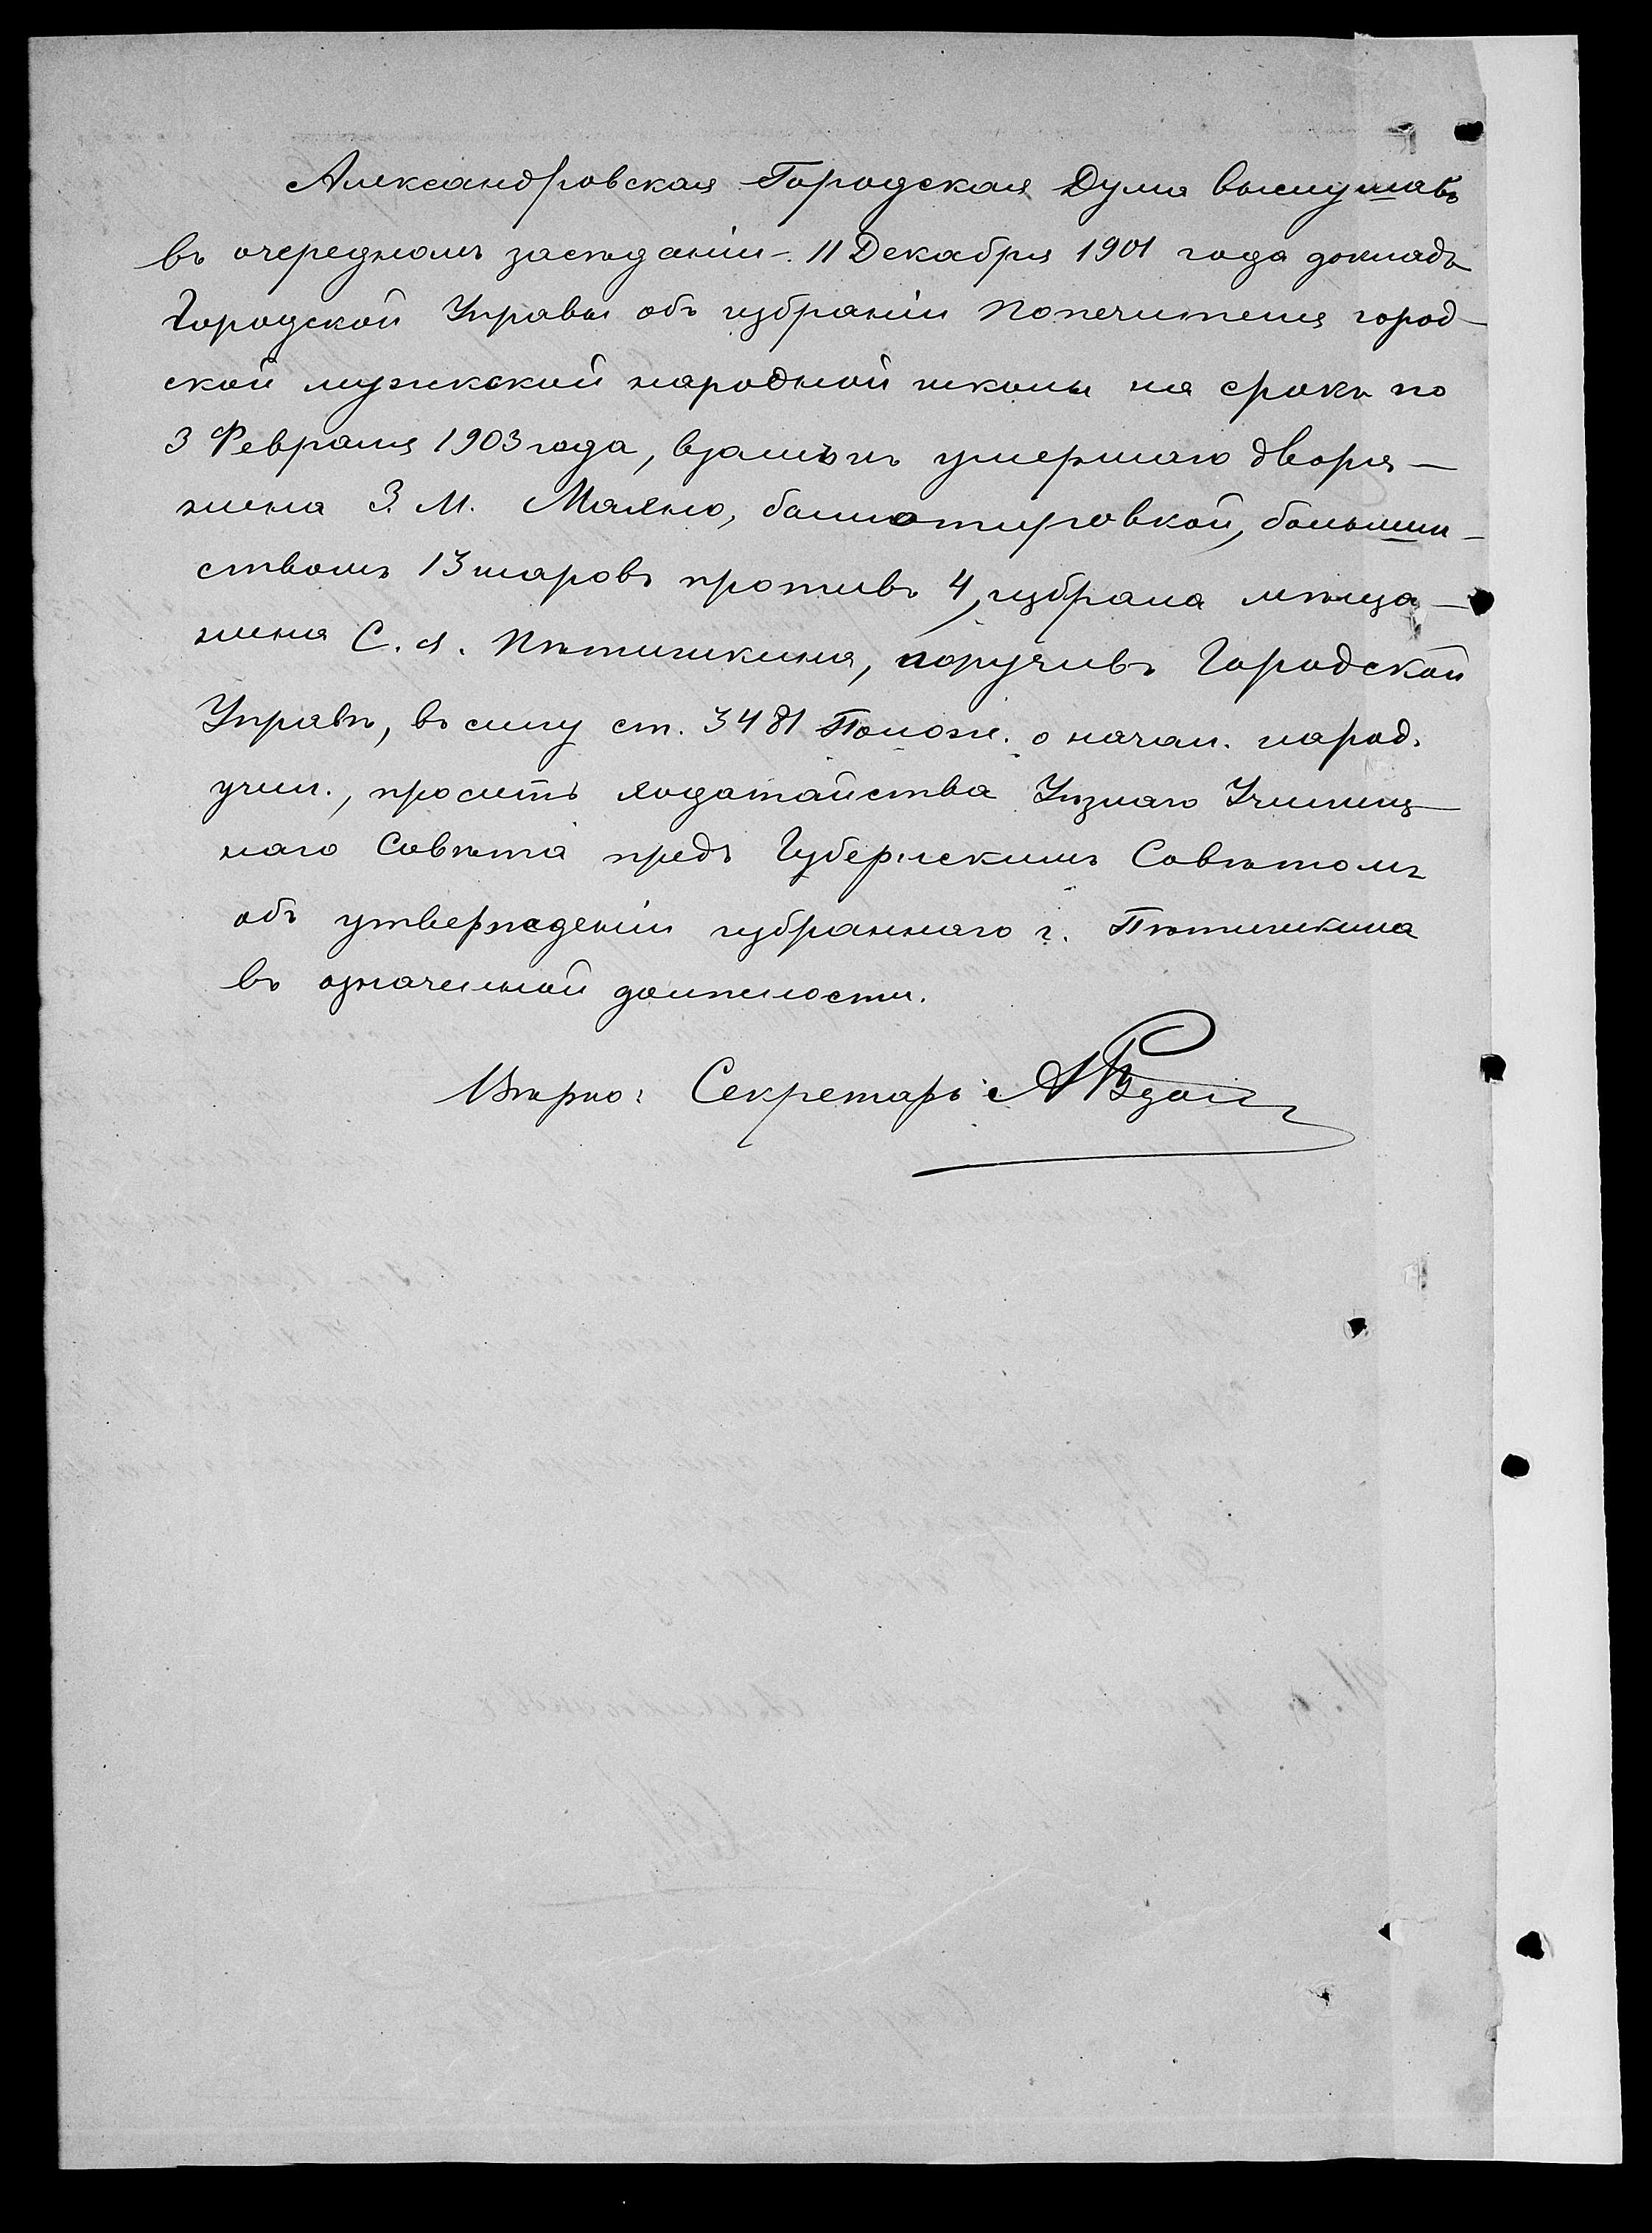 Александровская Городская Дума выслушавъ
въ очередномъ засѣданіи - 11 Декабря 1901 года докладъ
Городской Управы объ избраніи Попечителя город-
ской мужской народной школы на срокъ по
3 Февраля 1903 года, взамѣнъ умершаго дворя-
нина З. М. Маляно, баллотировкой, большин-
ствомъ 13 шаровъ противъ 4, избрала мѣща-
нина С. Я. Пѣтишкина, поручивъ Городской
Управѣ, въ силу ст. 3481 Полож. о начал. народ.
учил., просить ходатайства Уѣзнаго Училищ-
наго Совѣта предъ Губернскимъ Совѣтомъ
объ утвержденіи избраннаго г. Пѣтишкина
въ означенной должности.
Вѣрно: Секретарь: